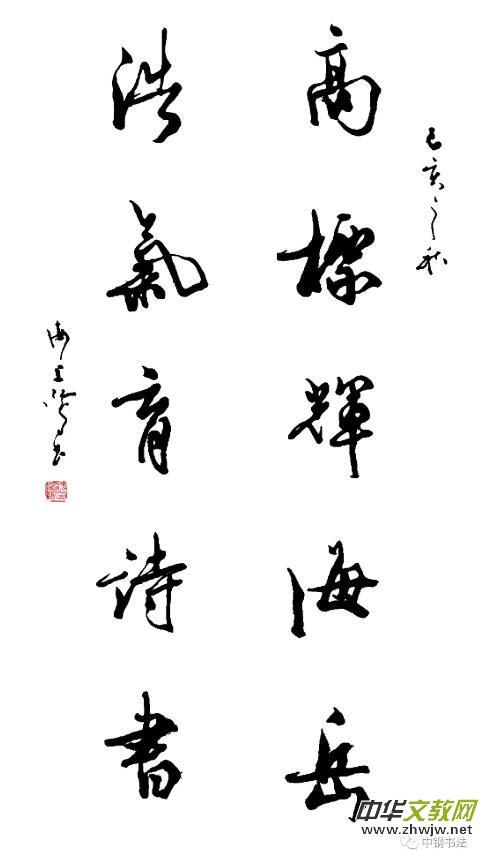 己亥之秋
高標輝海岳
浩氣育詩書
中华文教网
www.zhwjw.net
中钢书法